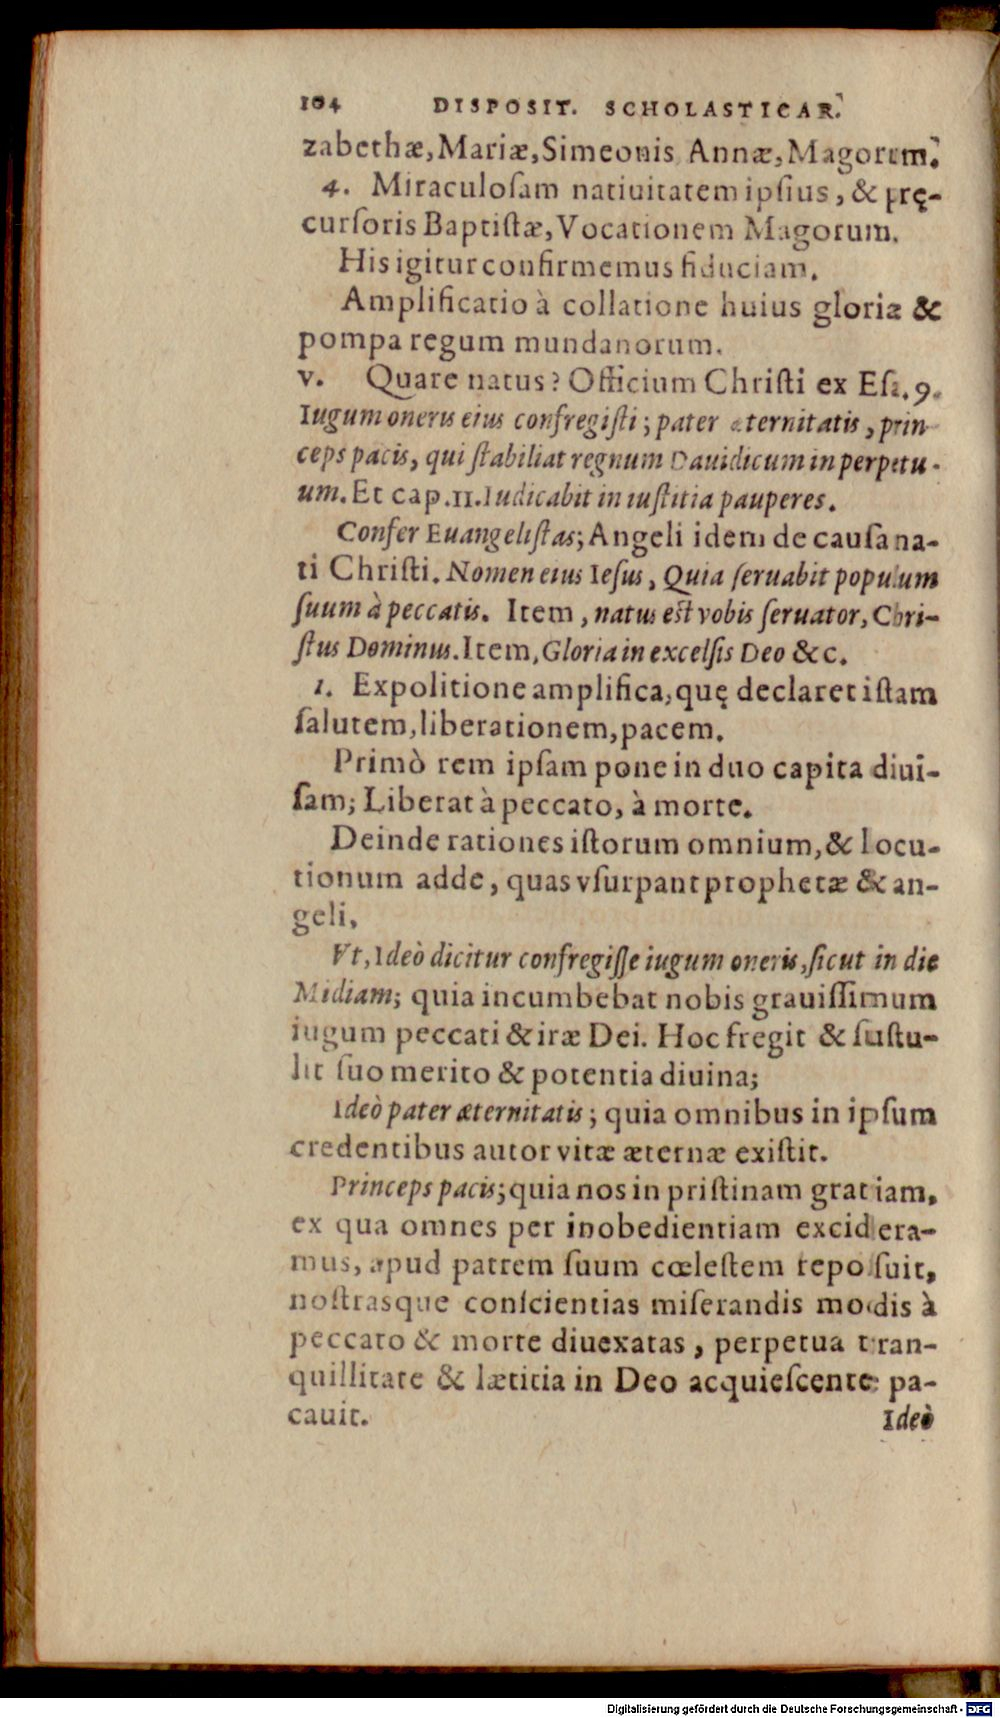 104 DISPOSIT. SCHOLASTICAR.
zabethæ, Mariæ, Simeonis Annæ, Magorum.
4. Miraculoſam natiuitatem ipſius, & prę-
curſoris Baptiſtæ, Vocationem Magorum.
His igitur confirmemus fiduciam.
Amplificatio à collatione huius gloriæ &
pompa regum mundanorum.
v. Quare natus? Officium Chriſti ex Eſa. 9.
Iugum oneris eius confregiſti; pater æternitatis, prin
ceps pacis, qui ſtabiliat regnum Dauidicum in perpetu-
um. Et cap. 11. Iudicabit in iuſtitia pauperes.
Confer Euangeliſtas; Angeli idem de cauſa na-
ti Chriſti. Nomen eius Ieſus, Quia ſeruabit populum
ſuum à peccatis. Item, natus eſt vobis ſeruator, Chri-
ſtus Dominus. Item, Gloria in excelſis Deo &c.
1. Expolitione amplifica, quę declaret iſtam
ſalutem, liberationem, pacem.
Primò rem ipſam pone in duo capita diui-
ſam; Liberat à peccato, à morte.
Deinde rationes iſtorum omnium, & locu-
tionum adde, quas vſurpant prophetæ & an-
geli.
Vt, Ideò dicitur confregiſſe iugum oneris, ſicut in die
Midiam; quia incumbebat nobis grauiſſimum
iugum peccati & iræ Dei. Hoc fregit & ſuſtu-
lit ſuo merito & potentia diuina;
Ideò pater æternitatis; quia omnibus in ipſum
credentibus autor vitæ æternæ exiſtit.
Princeps pacis; quia nos in priſtinam gratiam,
ex qua omnes per inobedientiam excidera-
mus, apud patrem ſuum cœleſtem repoſuit,
noſtrasque conſcientias miſerandis modis à
peccato & morte diuexatas, perpetua tran-
quillitate & lætitia in Deo acquieſcente pa-
cauit.
Ideò
Digitalisierung gefördert durch die Deutsche Forschungsgemeinschaft - DFG